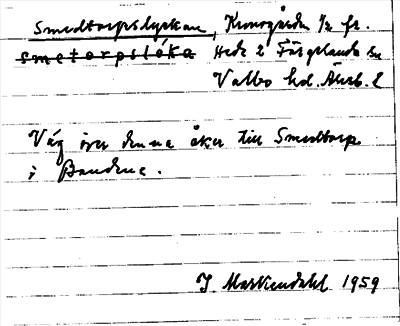 Smedtorpslyckan, Kronogården 1/2 fr.
smetorpslɔ́ka Hede 2 Färgelanda sn
Valbo hd. Älvsb. l
Väg över denna åker till Smedtorp
i Bandene.
J Markendahl 1959